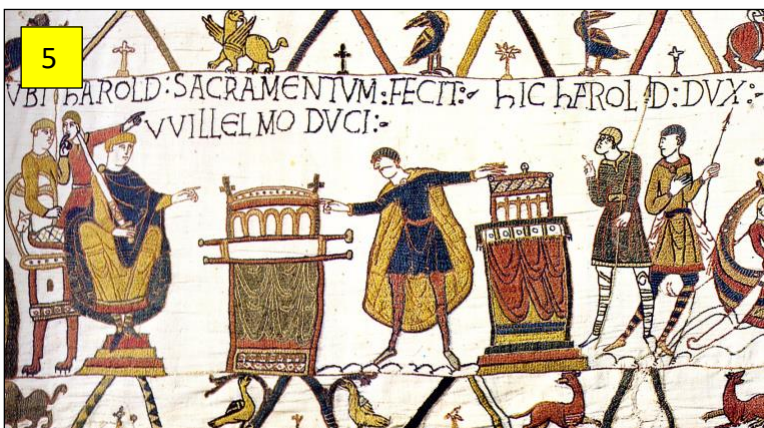 5
VBI hAROLD:SACRAMENTVM:FECIT:~ hIC hAROLD:DVX:~
VVILLELMO DVCI:~